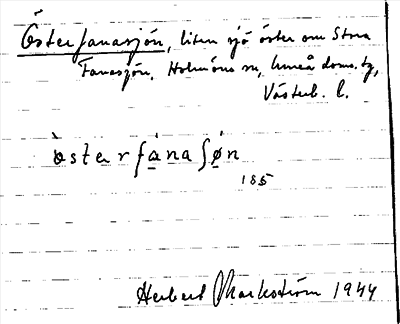 Österfanasjön, liten sjö öster om Stora
Fanasjön, Holmöns sn, Umeå doms. tg,
Västerb. l.
òsterfánaʃø̀n
185
Herbert Markström 1944